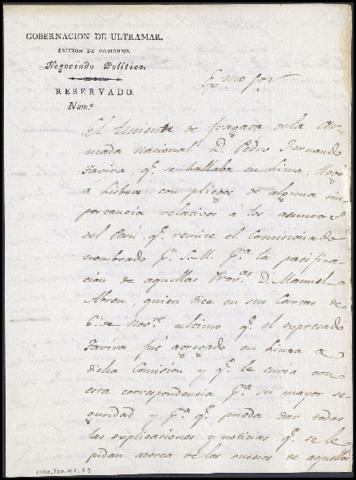 GOBERNACION DE ULTRAMAR.
SECCION DE GOBIERNO.
Negociado Político.
RESERVADO.
Núm.º
Exmo Sor
El teniente de fragata de la Ar-
mada nacional D. Pedro Fernando
Tavira, q.e se hallaba en Lima, llegó
á Lisboa con pliegos de alguna im-
portancia relativos á los asuntos
del Perú q.e remite el Comisionado
nombrado p.r S.M. p.a la pacifica-
cion de aquellas Prov.as D. Manuel
Abreu, quien dice en sus Cartas de
6 de Nov.re ultimo q.e el expresado
Tavira fué agregado en Lima a
dicha Comision y q.e le envia con
esta correspondencia p.a su mayor se-
guridad y p.a q.e pueda dar todas
las explicaciones y noticias q.e se le
pidan acerca de los sucesos de aquellas